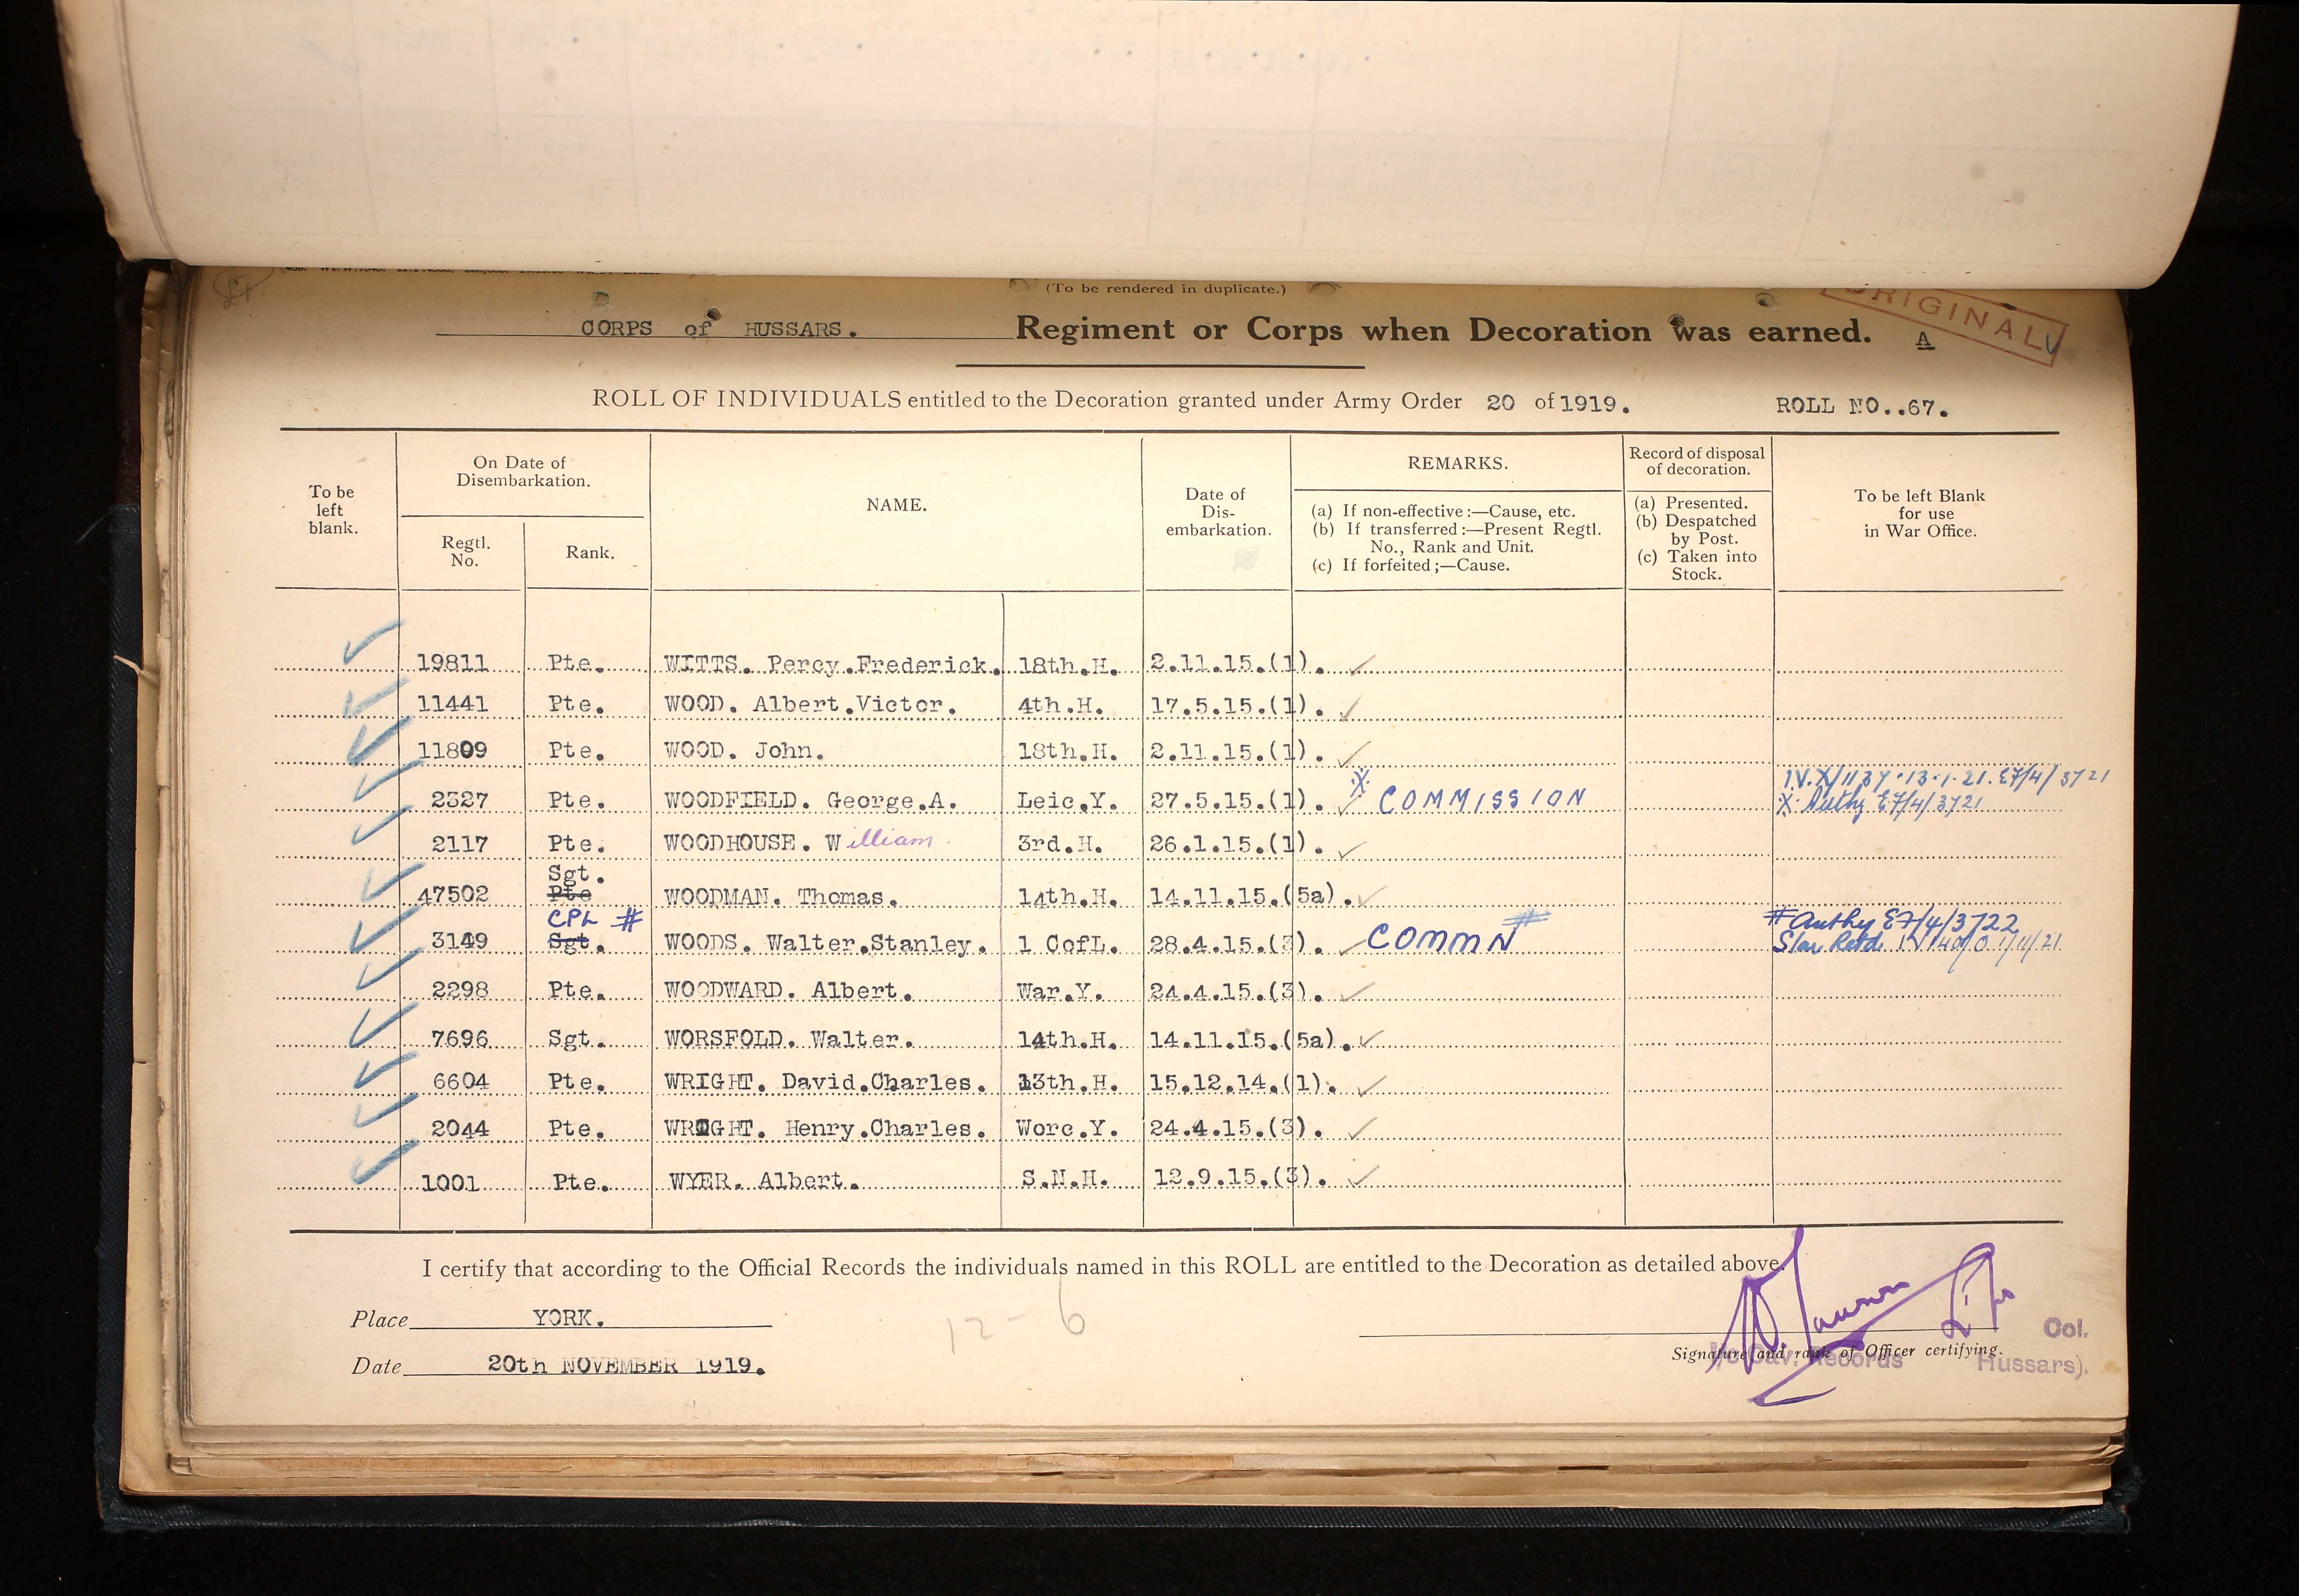 (To be rendered in duplicate.)
ORIGINAL
CORPS of HUSSARS. Regiment or Corps when Decoration was earned. A
ROLL OF INDIVIDUALS entitled to the Decoration granted under Army Order 20 of 1919. ROLL NO..67.
To be left blank.
On Date of Disembarkation.
Regtl. No.
Rank.
NAME.
Date of Dis-embarkation.
REMARKS.
(a) If non-effective:—Cause, etc.
(b) If transferred:—Present Regtl. No., Rank and Unit.
(c) If forfeited;—Cause.
Record of disposal of decoration.
(a) Presented.
(b) Despatched by Post.
(c) Taken into Stock.
To be left Blank for use in War Office.
19811 Pte. WITTS. Percy.Frederick. 18th.H. 2.11.15.(1).
11441 Pte. WOOD. Albert.Victor. 4th.H. 17.5.15.(1).
11809 Pte. WOOD. John. 18th.H. 2.11.15.(1).
2327 Pte. WOODFIELD. George.A. Leic.Y. 27.5.15.(1). COMMISSION
E7/4/3721
X. Authy E7/4/3721
2117 Pte. WOODHOUSE. William. 3rd.H. 26.1.15.(1).
Sgt.
47502 Pte WOODMAN. Thomas. 14th.H. 14.11.15.(5a).
CPL # # Authy E7/4/3722
3149 Sgt. WOODS. Walter.Stanley. 1 CofL. 28.4.15.(3). COMMN # Star Retd.
2298 Pte. WOODWARD. Albert. War.Y. 24.4.15.(3).
7696 Sgt. WORSFOLD. Walter. 14th.H. 14.11.15.(5a).
6604 Pte. WRIGHT. David.Charles. 13th.H. 15.12.14.(1).
2044 Pte. WRIGHT. Henry.Charles. Worc.Y. 24.4.15.(3).
1001 Pte. WYER. Albert. S.N.H. 12.9.15.(3).
I certify that according to the Official Records the individuals named in this ROLL are entitled to the Decoration as detailed above.
Place YORK. 12-6
Col.
Signature and rank of Officer certifying.
Date 20th NOVEMBER 1919. Cav. Records Hussars).